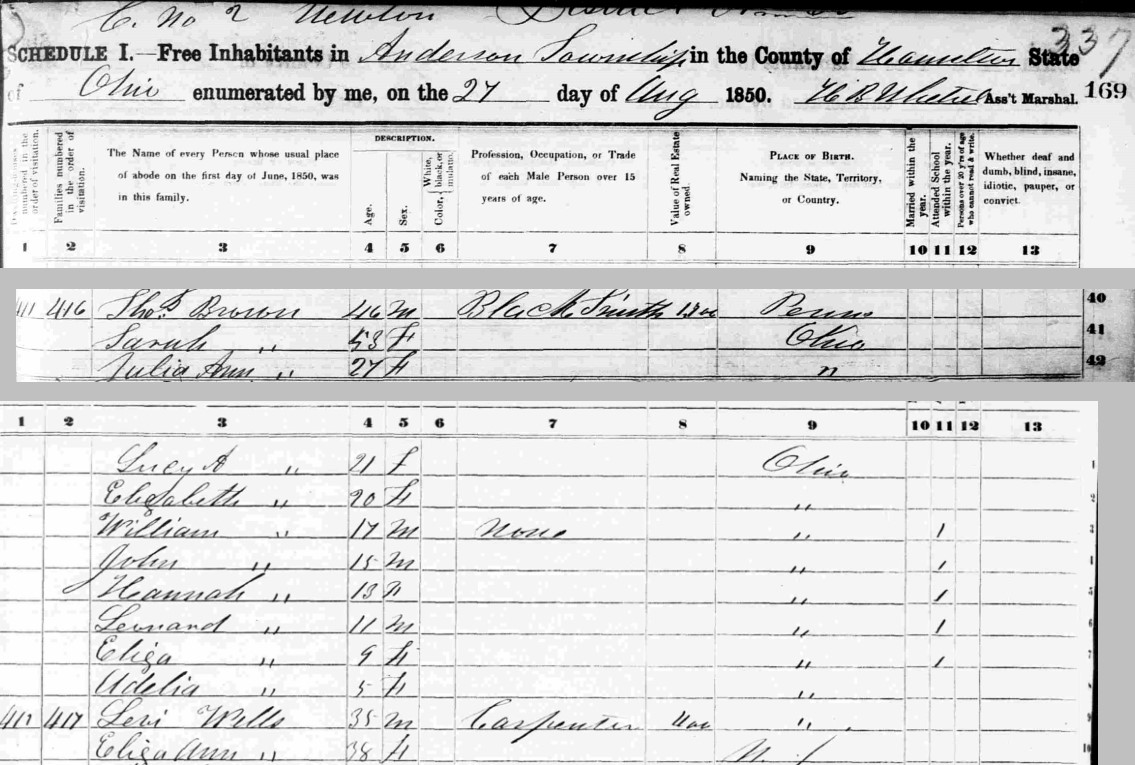 C. No 2 Newton
337
SCHEDULE I.—Free Inhabitants in Anderson Township in the County of Hamilton State
of Ohio enumerated by me, on the 27 day of Aug 1850. Ass't Marshal. 169
numbered in the order of visitation.
Families numbered in the order of visitation.
The Name of every Person whose usual place of abode on the first day of June, 1850, was in this family.
DESCRIPTION.
Age.
Sex.
White, black, or mulatto.
Color,
Profession, Occupation, or Trade of each Male Person over 15 years of age.
Value of Real Estate owned.
PLACE OF BIRTH. Naming the State, Territory, or Country.
Married within the year.
Attended School within the year.
Persons over 20 y'rs of age who cannot read & write.
Whether deaf and dumb, blind, insane, idiotic, pauper, or convict.
1 2 3 4 5 6 7 8 9 10 11 12 13
411 416 Thos. Brown 46 m Black Smith Penn 40
Sarah " 43 F Ohio 41
Julia Ann " 27 F " 42
1 2 3 4 5 6 7 8 9 10 11 12 13
Lucy A " 21 F Ohio 1
Elizabeth " 20 F " 2
William " 17 m None " 1 3
John " 15 m " 1
Hannah " 13 F " 1 5
Leonard " 11 m " 1 6
Eliza " 9 F " 1 7
Adelia " 5 F "
417 Levi Wells 35 m Carpenter " 9
Eliza Ann " 38 F N. J 10